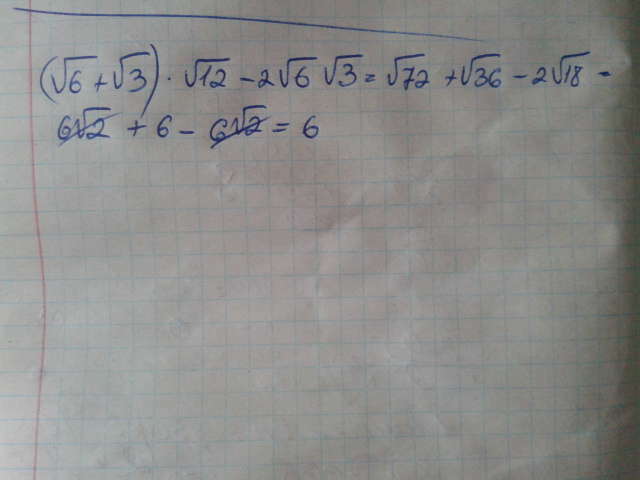 (√6 + √3) · √12 - 2√6 √3 = √72 + √36 - 2√18 =
6√2 + 6 - 6√2 = 6